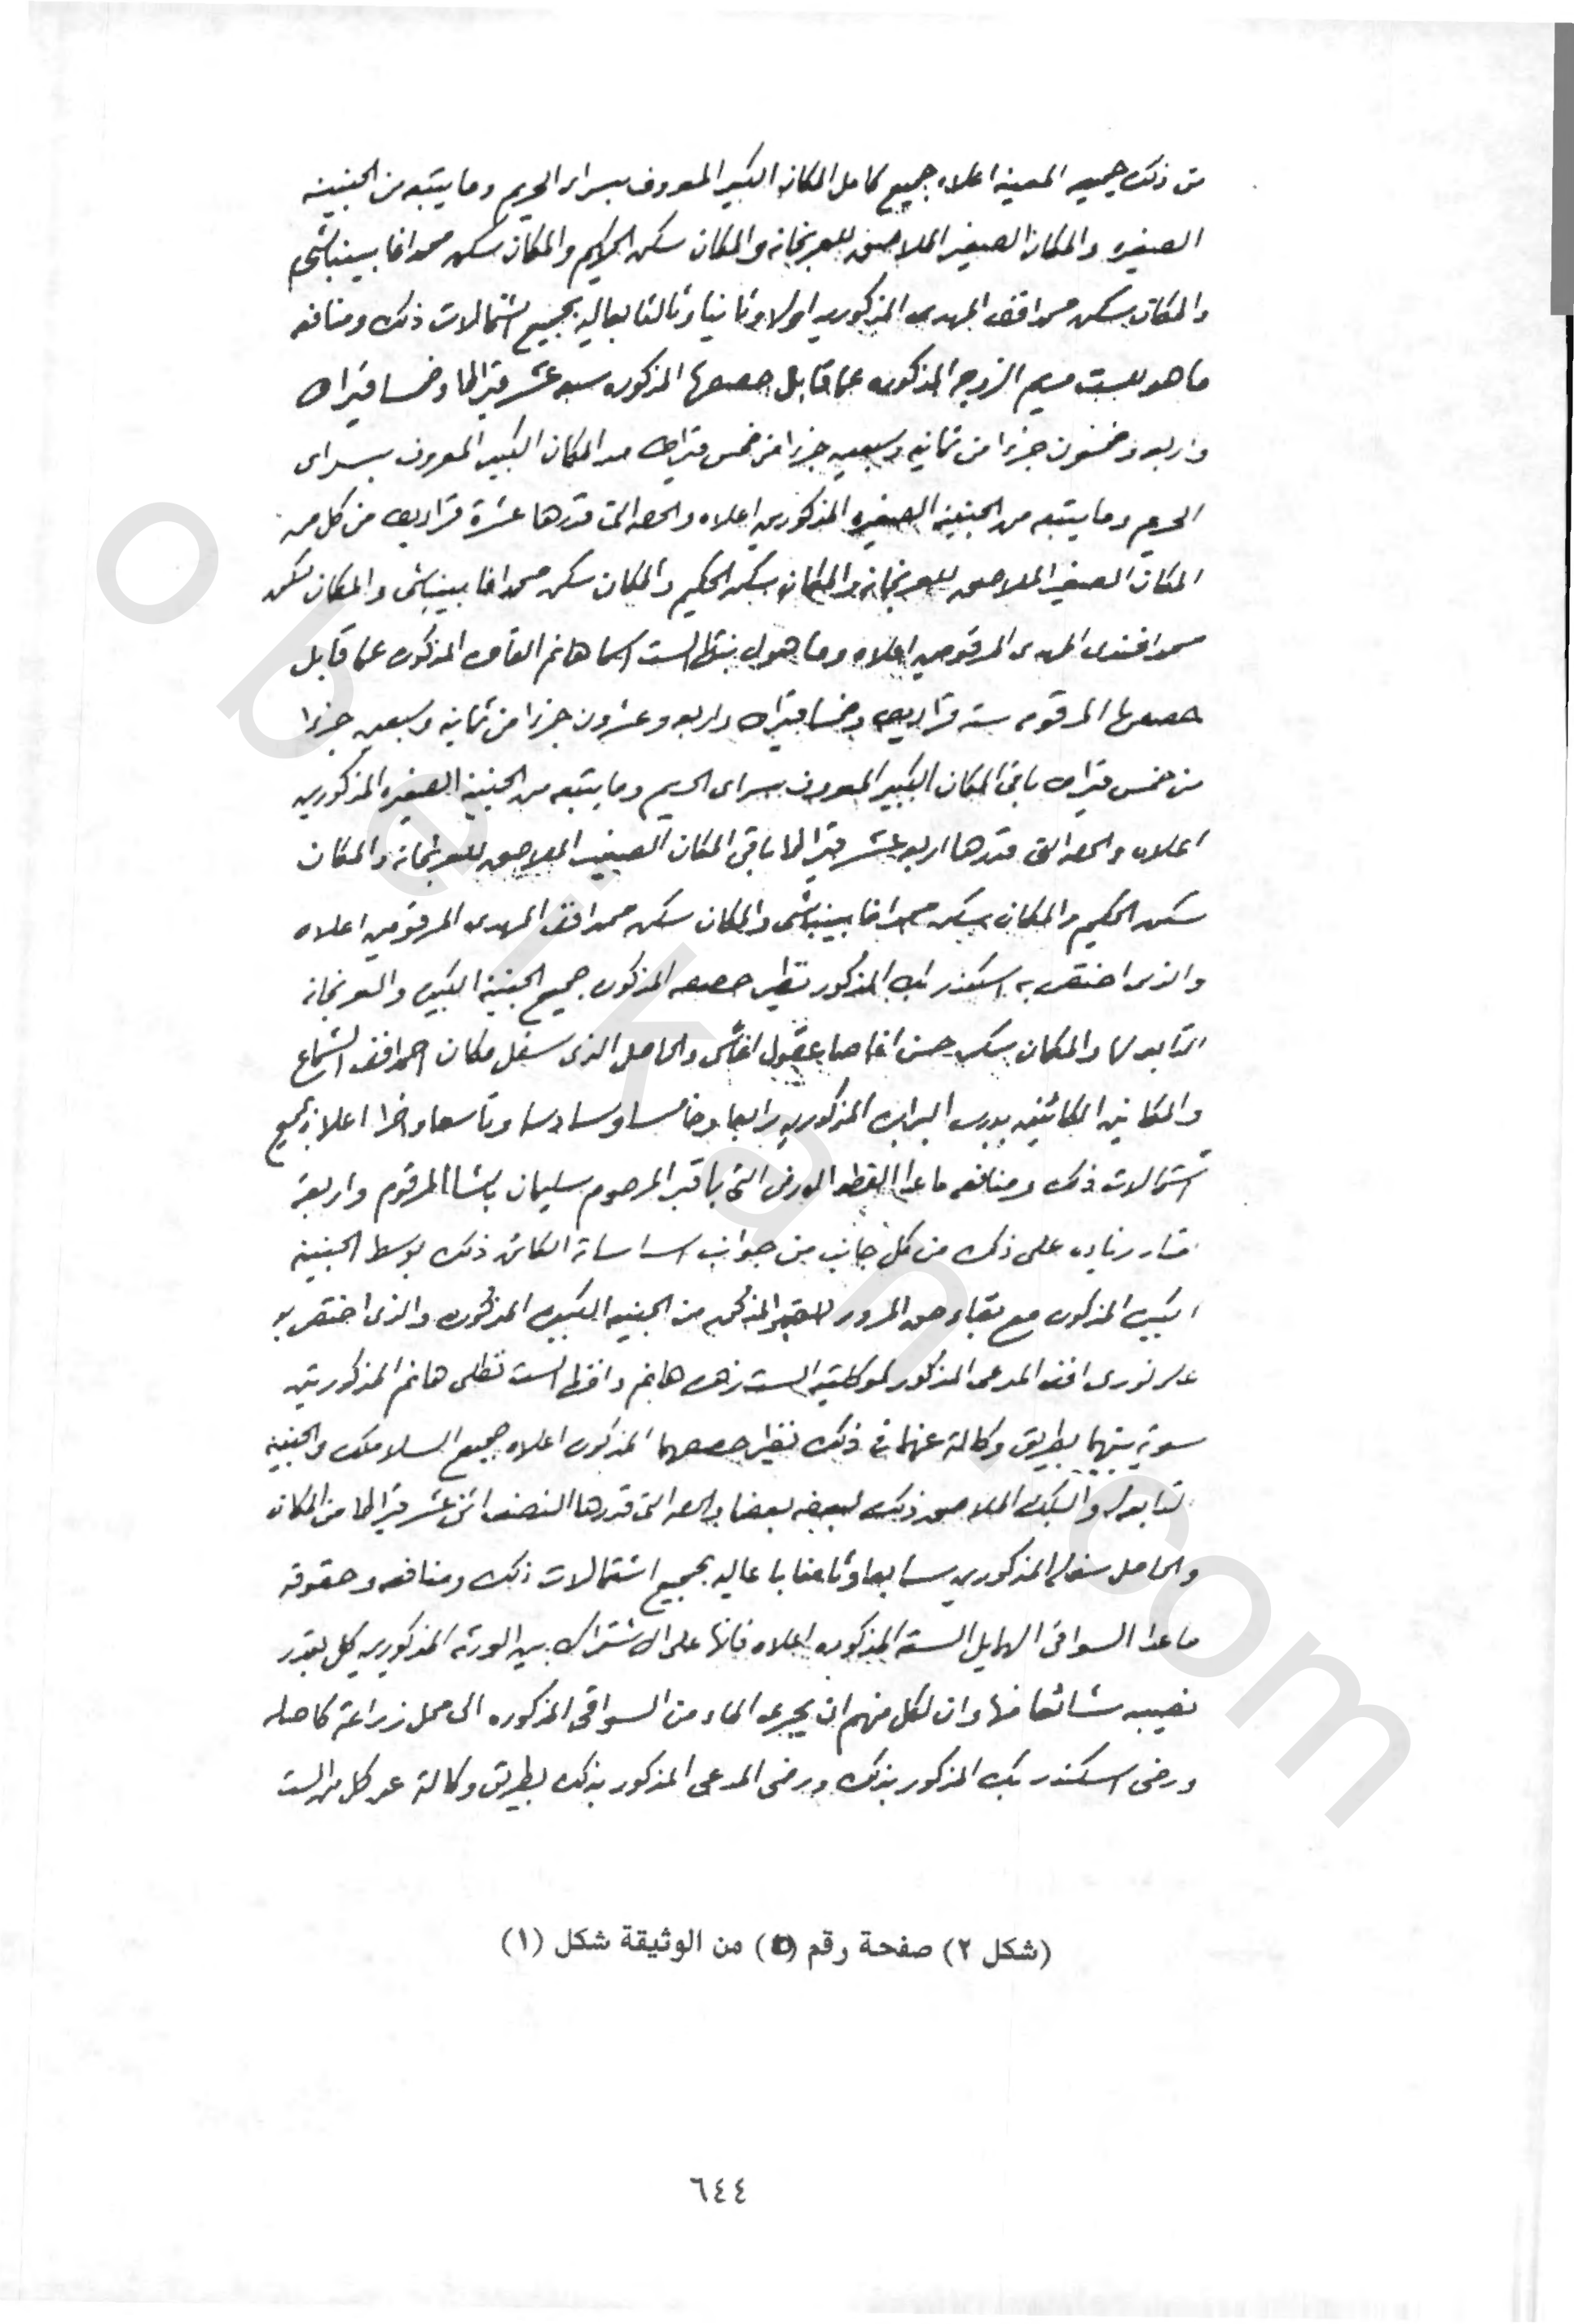 من ذلك جميعه المعينه اعلاه جميع كامل المكان الكبير المعروف بسراى الحريم وما يتبعه من الجنينه
الصغيره والمكان الصغير الملاصق للعربخانه والمكان سكن الحكيم والمكان سكن محمد اغا بينباشى
والمكان سكن محمد افندى المهدى المذكورين اولا وثانيا وثالثا بعاليه بجميع اشتمالات ذلك ومنافعه
ما هو للست مريم الزوجه المذكوره عما قابل حصصها المذكوره سبعه عشر قيراطا وخمسا قيراط
واربعه وخمسون جزءا من ثمانيه وسبعين جزءا من خمس قيراط من المكان الكبير المعروف بسراى
الحريم وما يتبعه من الجنينه الصغيره المذكورين اعلاه والحصه التى قدرها عشرة قراريط من كل من
المكان الصغير الملاصق للعربخانه والمكان سكن الحكيم والمكان سكن محمد اغا بينباشى والمكان سكن
محمد افندى المهدى المرقومين اعلاه وما هو لبنتها الست اسما هانم القاصر المذكوره عما قابل
حصصها المرقومه سته قراريط وخمسا قيراط واربعه وعشرون جزءا من ثمانيه وسبعين جزءا
من خمس قيراط باقى المكان الكبير المعروف بسراى الحريم وما يتبعه من الجنينه الصغيره المذكورين
اعلاه والحصه التى قدرها اربعه عشر قيراطا باقى المكان الصغير الملاصق للعربخانه والمكان
سكن الحكيم والمكان سكن محمد اغا بينباشى والمكان سكن محمد افندى المهدى المرقومين اعلاه
والذى اختص به اسكندر بك المذكور نظير حصصه المذكوره جميع الجنينه الكبيره والعربخانه
التابعه لها والمكان سكن حسن اغا والحاصل الذى سفل مكان احمد افندى الشماع
والمكانين الكائنين بدرب المذكورين رابعا وخامسا وسادسا وتاسعا واخرا اعلاه بجميع
اشتمالات ذلك ومنافعه ما عدا القطعه الارض التى بها قبر المرحوم سليمان باشا المرقوم واربعة
زياده على ذلك من كل جانب من جوانب اساساته الكائن ذلك بوسط الجنينه
الكبيره المذكوره مع بقاء حق المرور للقبر المذكور من الجنينه الكبيره المذكوره والذى اختص به
على نورى افندى المدعى المذكور لموكلتيه الست زهره هانم واختها الست نظلى هانم المذكورتين
سوية بينهما بطريق وكالته عنهما فى ذلك نظير حصصهما المذكوره اعلاه جميع السلاملك والجنينه
التابعه له الملاصق ذلك لبعضه بعضا والحصه التى قدرها النصف اثنى عشر قيراطا من المكان
والحاصل سفله المذكورين سابعا وثامنا باعاليه بجميع اشتمالات ذلك ومنافعه وحقوقه
ما عدا السواقى السته المذكوره اعلاه فانها على الاشتراك بين الورثه المذكورين كل بقدر
نصيبه شائعا فيها وان لكل منهم ان يجرى الماء من السواقى المذكوره الى محل زراعة كاصله
ورضى اسكندر بك المذكور بذلك ورضى المدعى المذكور بذلك بطريق وكالته عن كل من الست
(شكل ٢) صفحة رقم (٥) من الوثيقة شكل (١)
٦٤٤
obeikan.com